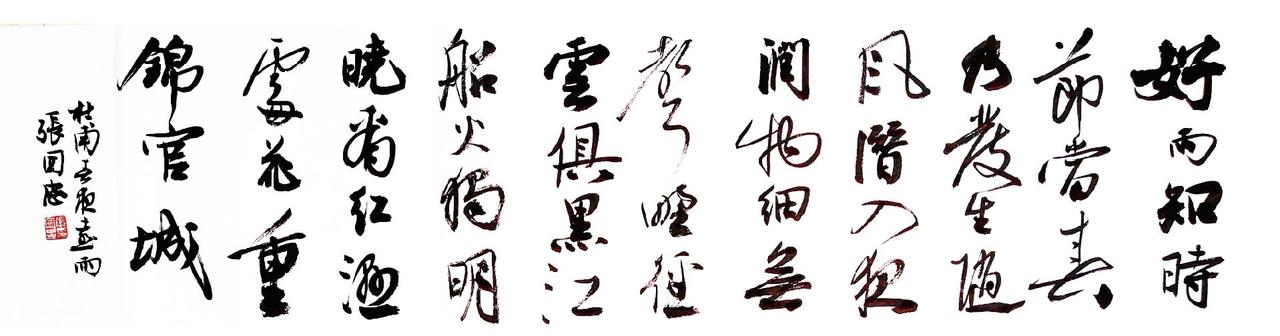 好雨知時
節當春
乃發生隨
風潛入夜
潤物細無
聲野徑
雲俱黑江
船火獨明
曉看紅濕
處花重
錦官城
杜甫春夜喜雨
張國忠